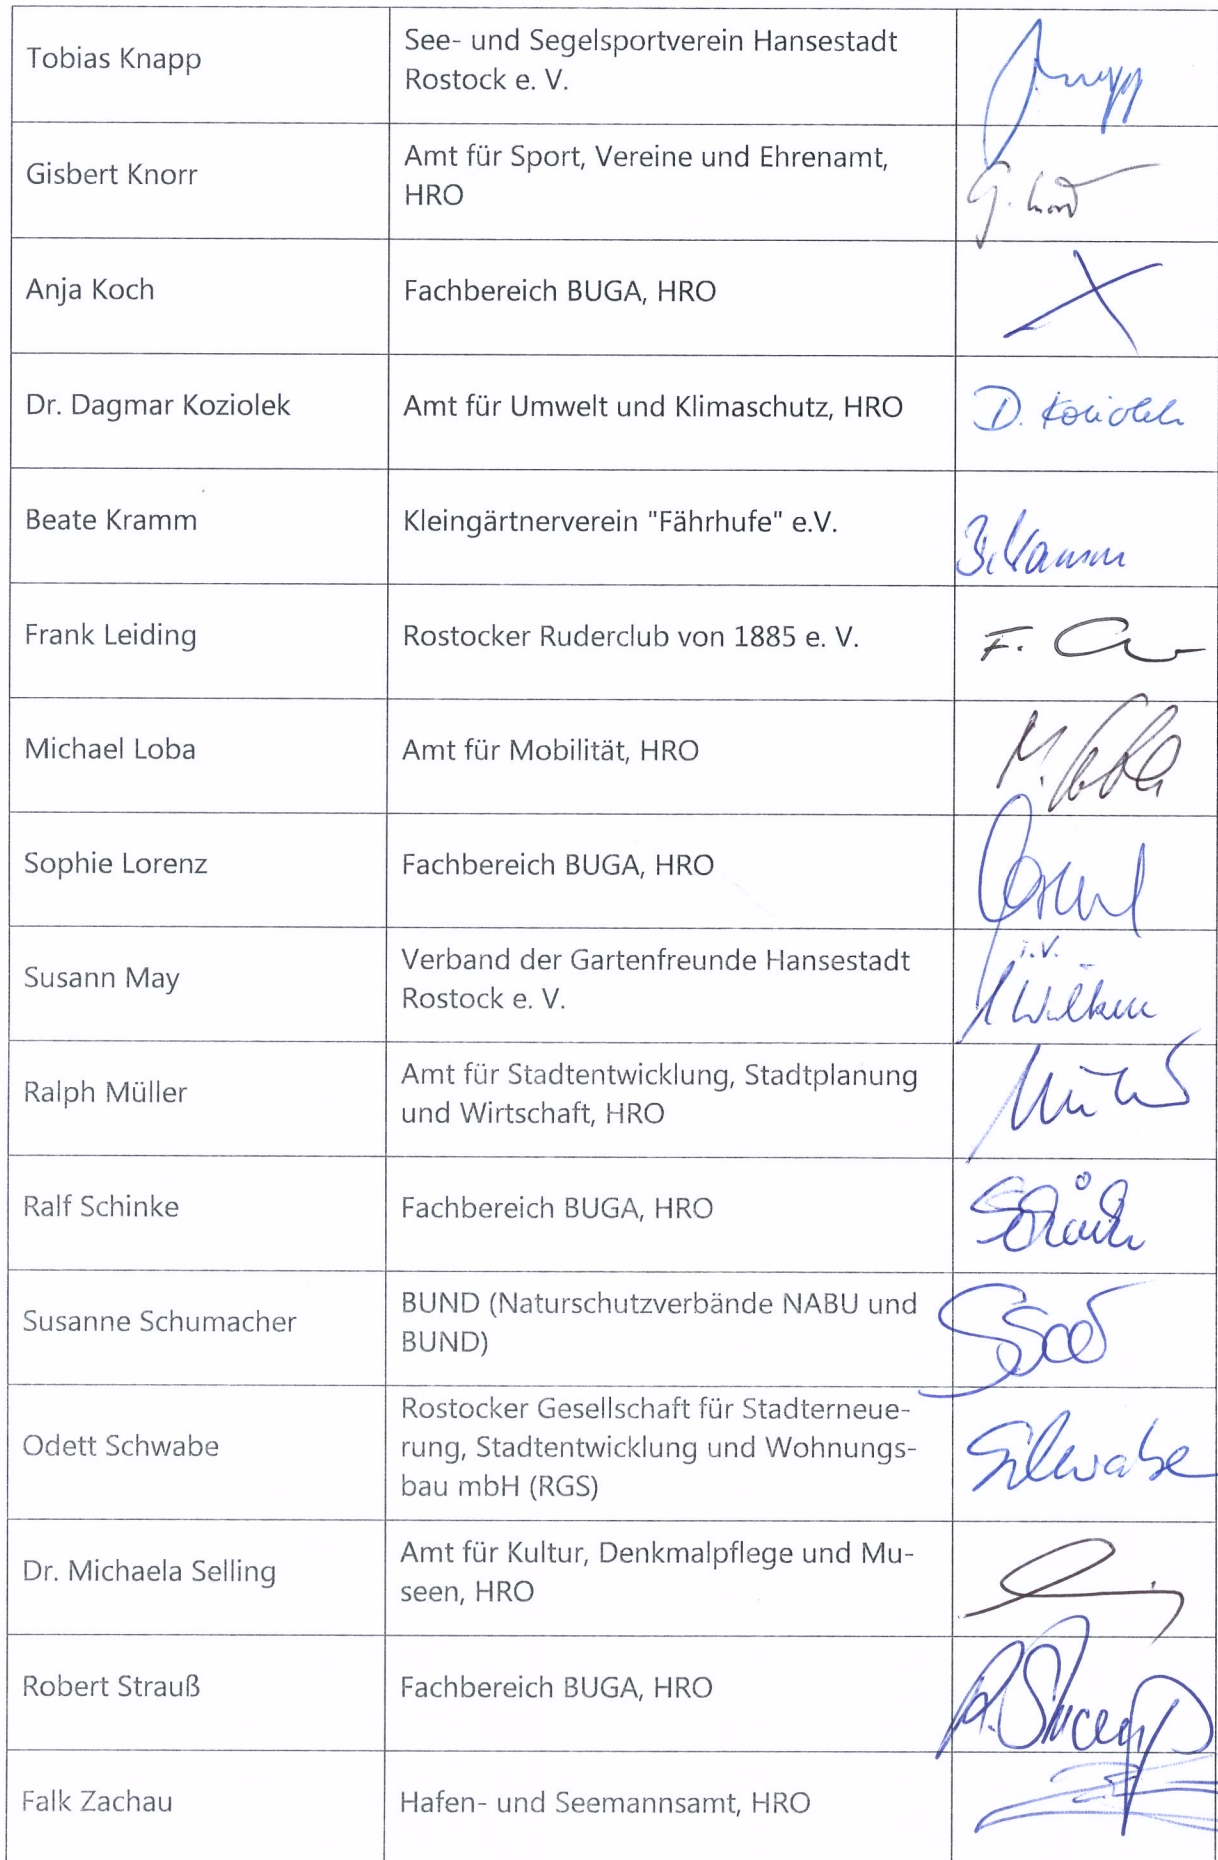 Tobias Knapp
See- und Segelsportverein Hansestadt
Rostock e. V.
Gisbert Knorr
Amt für Sport, Vereine und Ehrenamt,
HRO
G.
Anja Koch
Fachbereich BUGA, HRO
Dr. Dagmar Koziolek
Amt für Umwelt und Klimaschutz, HRO
D. Koziolek
Beate Kramm
Kleingärtnerverein "Fährhufe" e.V.
B. Kramm
Frank Leiding
Rostocker Ruderclub von 1885 e. V.
F.
Michael Loba
Amt für Mobilität, HRO
M. Loba
Sophie Lorenz
Fachbereich BUGA, HRO
Susann May
Verband der Gartenfreunde Hansestadt
Rostock e. V.
i.V.
Wilken
Ralph Müller
Amt für Stadtentwicklung, Stadtplanung
und Wirtschaft, HRO
Ralf Schinke
Fachbereich BUGA, HRO
Susanne Schumacher
BUND (Naturschutzverbände NABU und
BUND)
Odett Schwabe
Rostocker Gesellschaft für Stadterneue-
rung, Stadtentwicklung und Wohnungs-
bau mbH (RGS)
Schwabe
Dr. Michaela Selling
Amt für Kultur, Denkmalpflege und Mu-
seen, HRO
Robert Strauß
Fachbereich BUGA, HRO
R.
Falk Zachau
Hafen- und Seemannsamt, HRO